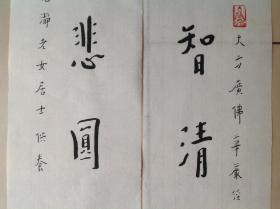 大方廣佛華嚴經
智清
悲圓
老女居士供養